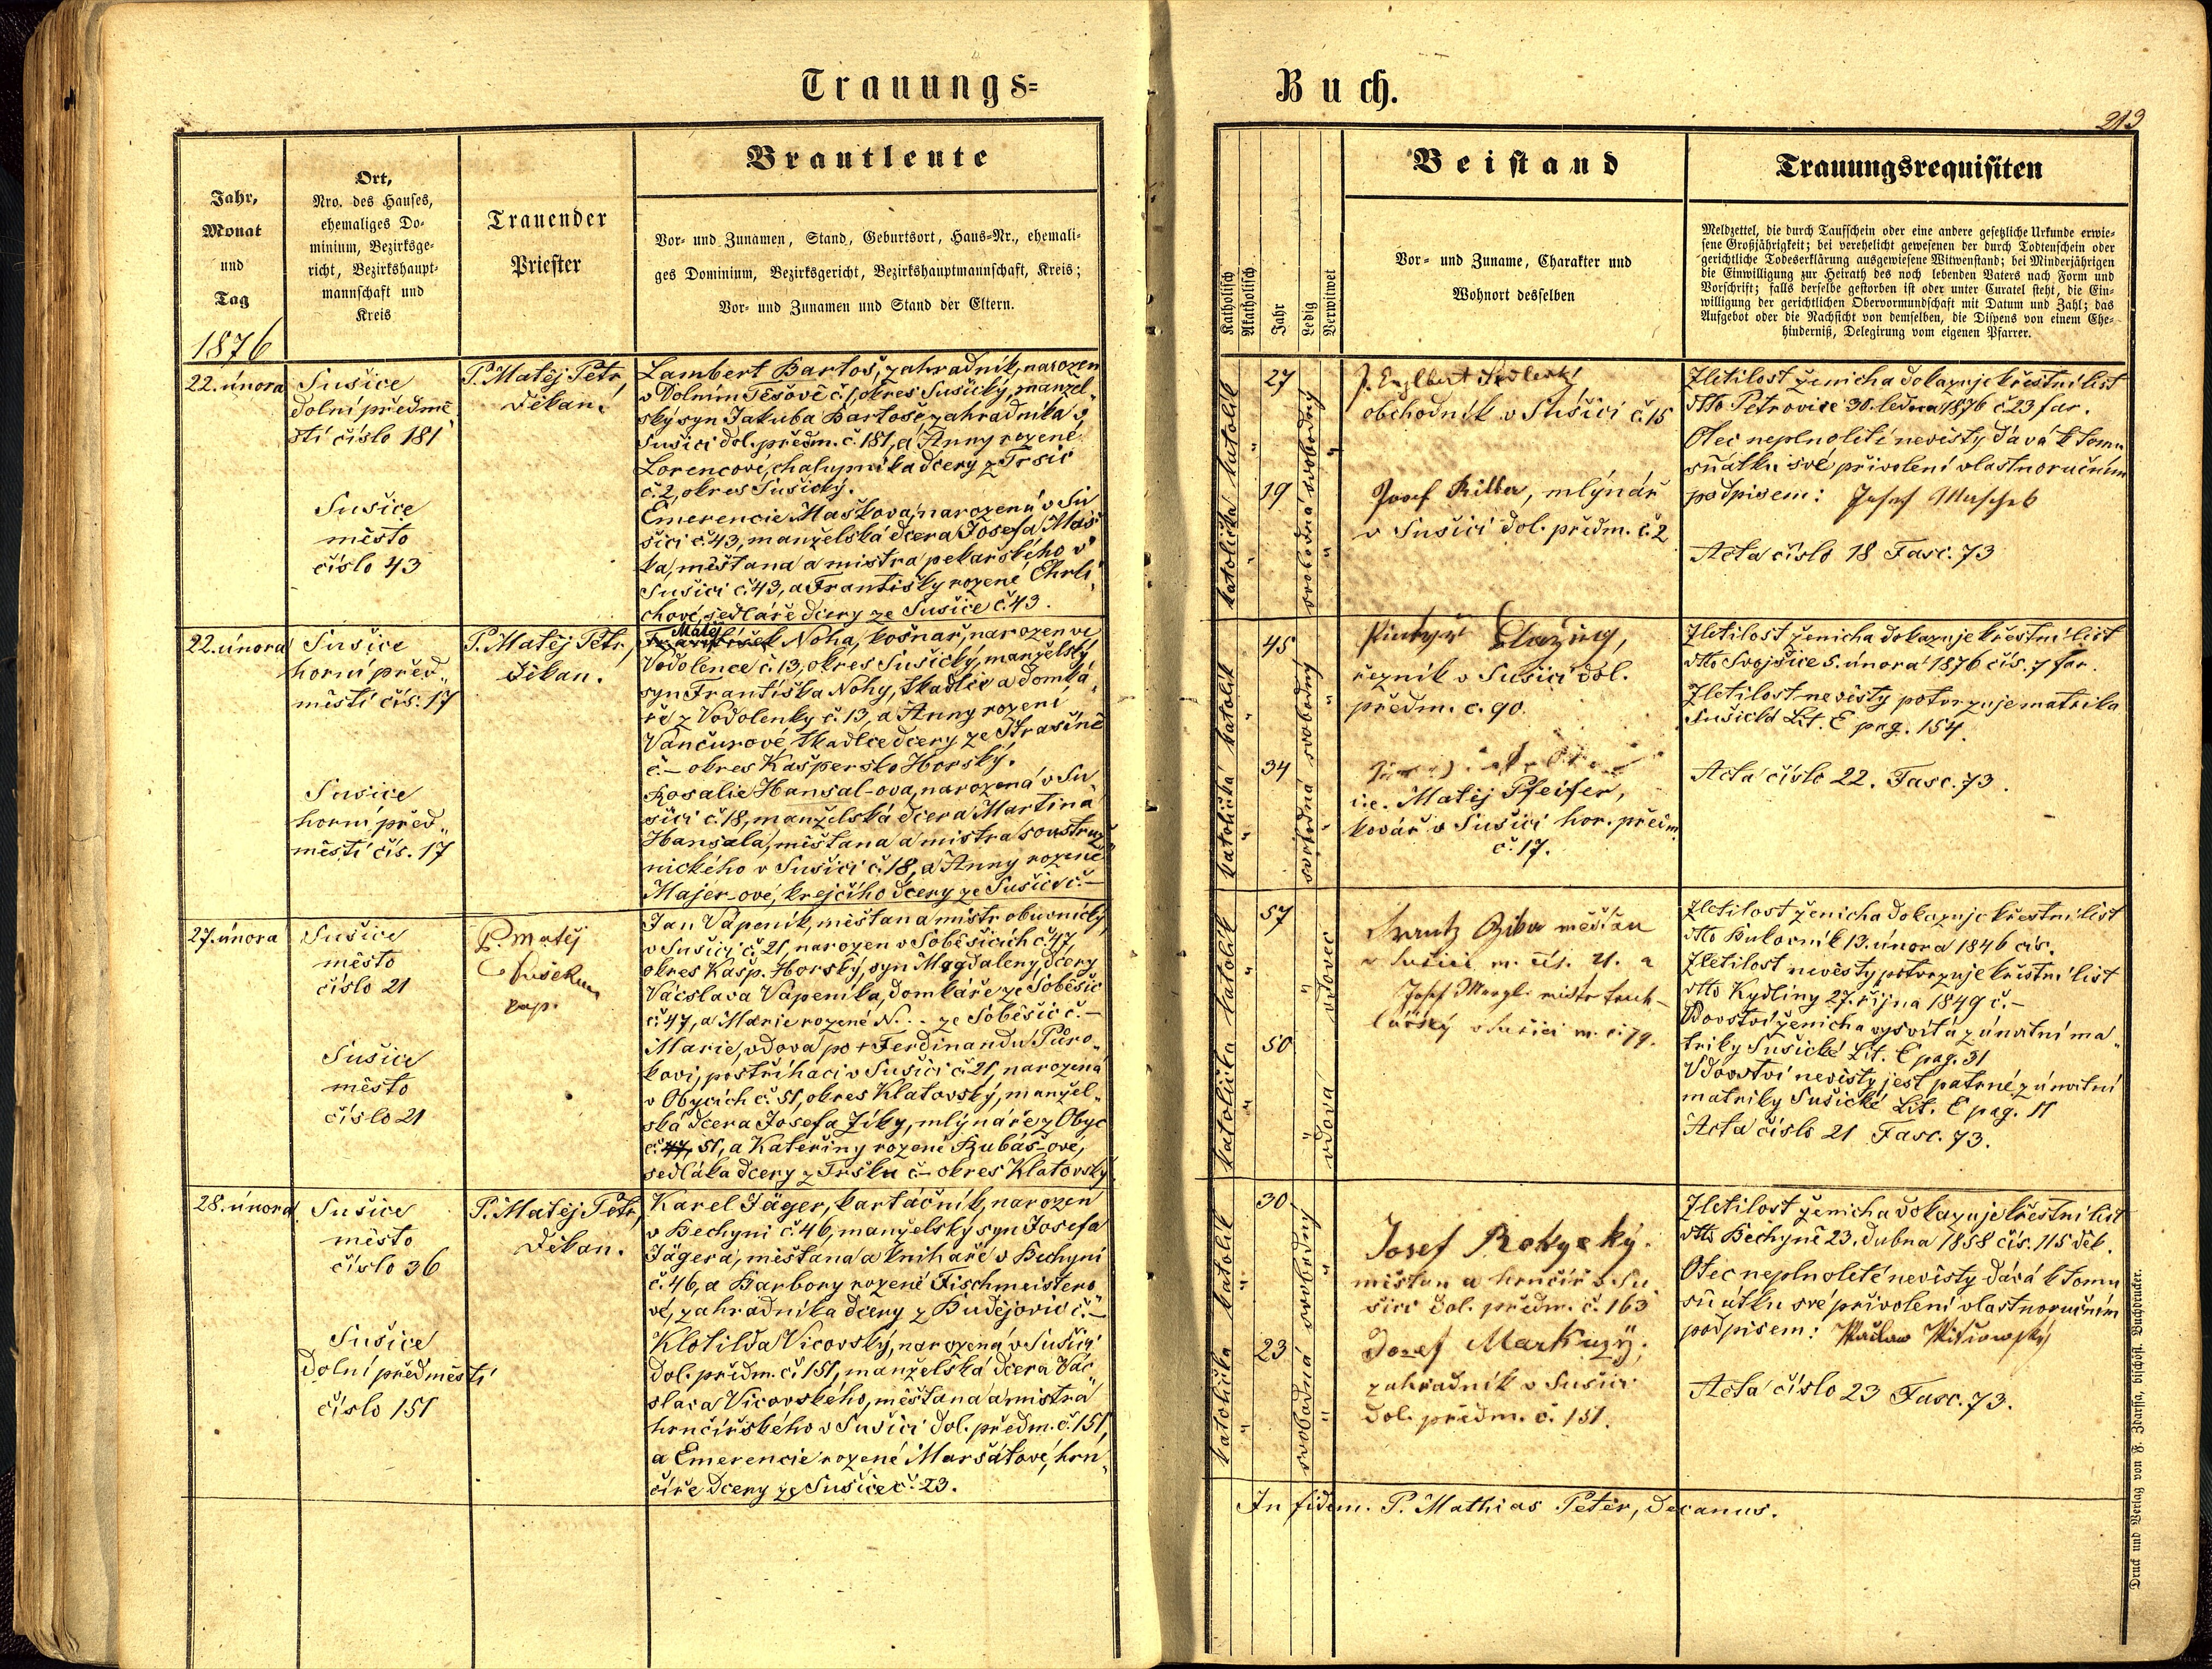 Trauungs=
Buch.
213
Jahr,
Monat
und
Tag
1876
Ort,
Nro. des Hauses,
ehemaliges Do-
minium, Bezirksge-
richt, Bezirkshaupt-
mannschaft und
Kreis
Trauender
Priester
Brautleute
Vor- und Zunamen, Stand, Geburtsort, Haus-Nr., ehemali-
ges Dominium, Bezirksgericht, Bezirkshauptmannschaft, Kreis;
Vor- und Zunamen und Stand der Eltern.
Katholisch
Akatholisch
Jahr
Ledig
Verwitwet
Beistand
Vor- und Zuname, Charakter und
Wohnort desselben
Trauungsrequisiten
Meldzettel, die durch Taufschein oder eine andere gesetzliche Urkunde erwie-
sene Großjährigkeit; bei verehelicht gewesenen der durch Todtenschein oder
gerichtliche Todeserklärung ausgewiesene Witwenstand; bei Minderjährigen
die Einwilligung zur Heirath des noch lebenden Vaters nach Form und
Vorschrift; falls derselbe gestorben ist oder unter Curatel steht, die Ein-
willigung der gerichtlichen Obervormundschaft mit Datum und Zahl; das
Aufgebot oder die Nachsicht von demselben, die Dispens von einem Ehe-
hinderniß, Delegirung vom eigenen Pfarrer.
22. února
Sušice
dolní předmě
stí číslo 181
Sušice
město
číslo 43
P. Matěj Petr,
děkan.
Lambert Bartoš, zahradník, narozen
v Dolním Těšově č. 1, okres Sušický, manžel„
ský syn Jakuba Bartoše, zahradníka v
Sušici dol. předm. č. 181, a Anny rozené
Lorencové, chalupníka dcery z Trsic
č. 2, okres Sušický.
Emerencie Maškova, narozená v Su
šici č. 43, manželská dcera Josefa Maš
ka, měšťana a mistra pekařského v
Sušici č. 43, a Františky rozené Ehrli„
chové, sedláře dcery ze Sušice č. 43.
katolík
katolička
27
19
svobodný
svobodná
obchodník v Sušici č. 15
Josef Ritter, mlýnář
v Sušici dol. předm. č. 2
Zletilost ženicha dokazuje křestní list
dtto Petrovice 30. ledna 1876 č. 23 far.
Otec neplnoletí nevěsty dává k tomu
sňatku své přivolení vlastnoručním
podpisem: Josef Maschek
Acta číslo 18 Fasc. 73
22. února
Sušice
horní před„
městí čís. 17
Sušice
horní před„
městí čís. 17
P. Matěj Petr,
děkan.
Matěj
František Noha, košnař, narozen ve
Vodolence č. 13, okres Sušický, manželský
syn Františka Nohy, tkadlce a domká„
ře z Vodolenky č. 13, a Anny rození
Vančurové, tkadlce dcery ze Strašíně
č. – okres Kašpersko Horský.
Rosalie Hansal-ova, narozená v Su
šici č. 18, manželská dcera Martina
Hansala, měšťana a mistra soustruž
nického v Sušici č. 18, a Anny rozené
Majer-ové, krejčího dcery ze Sušice č. –
katolík
katolička
45
34
svobodný
svobodná
řezník v Sušici dol.
předm. č. 90.
i.e. Matěj Pfeifer,
kovář v Sušici hor. předm
č. 17.
Zletilost ženicha dokazuje křestní list
dtto Svojšice 5. února 1876 čís. 7 far.
Zletilost nevěsty potvrzuje matrika
Sušická Lit. E pag. 154.
Acta číslo 22. Fasc. 73.
27. února
Sušice
město
číslo 21
Sušice
město
číslo 21
P. Matěj
kap.
Jan Vápeník, měšťan a mistr obuvnický
v Sušici č. 21, narozen v Soběšicích č. 47,
okres Kašp. Horský, syn Magdaleny, dcery
Václava Vápeníka, domkáře ze Soběšic
č. 47, a Marie rozené N... ze Soběšic č. –
Marie, vdova po † Ferdinandu Půro„
kovi, postřihači v Sušici č. 21, narozená
v Obycích č. 51, okres Klatovský, manžel„
ská dcera Josefa Zíky, mlynáře z Obyc
č. 47, 51, a Kateřiny rozené Rubáš-ové,
sedláka dcery z Tršku č – okres Klatovský
katolík
katolička
57
50
vdovec
vdova
měšťan
v Sušici m. čís. 21. a
Josef mistr truh-
lářský v Sušici m. č. 79.
Zletilost ženicha dokazuje křestní list
dtto Bukovník 13. února 1846 čís.
Zletilost nevěsty potvrzuje křestní list
dtto Kydliny 27. října 1849 č. –
Vdovství ženicha vysvítá z úmrtní ma„
triky Sušické Lit. E pag. 31
Vdovství nevěsty jest patrné z úmrtní
matriky Sušické Lit. E pag. 11
Acta číslo 21 Fasc. 73.
28. února
Sušice
město
číslo 36
Sušice
dolní předměstí
číslo 151
P. Matěj Petr,
děkan.
Karel Jäger, kartáčník, narozen
v Bechyni č. 46, manželský syn Josefa
Jägera, měšťana a knihaře v Bechyni
č. 46, a Barbory rozené Fischmeistero
vé, zahradníka dcery z Budějovic č. –
Klotilda Vicovský, narozená v Sušici
dol. předm. č. 151, manželská dcera Vác„
slava Vicovského, měšťana a mistra
hrnčířského v Sušici dol. předm. č. 151,
a Emerencie rozené Maršátové, hrn„
číře dcery ze Sušice č. 23.
katolík
katolička
30
23
svobodný
svobodná
Josef Rokycký.
měšťan a hrnčíř v Su
šici dol. předm. č. 163
Josef Markuzÿ,
zahradník v Sušici
dol. předm. č. 151.
Zletilost ženicha dokazuje křestní list
dtto Bechyně 23. dubna 1858 čís. 115 děk.
Otec neplnoleté nevěsty dává k tomu
sňatku své přivolení vlastnoručním
podpisem: Wáclaw Witzowský
Acta číslo 23 Fasc. 73.
In fidem. P. Mathias Peter, decanus.
Druck und Verlag von F. Zdarssa, bischöfl. Buchdrucker.